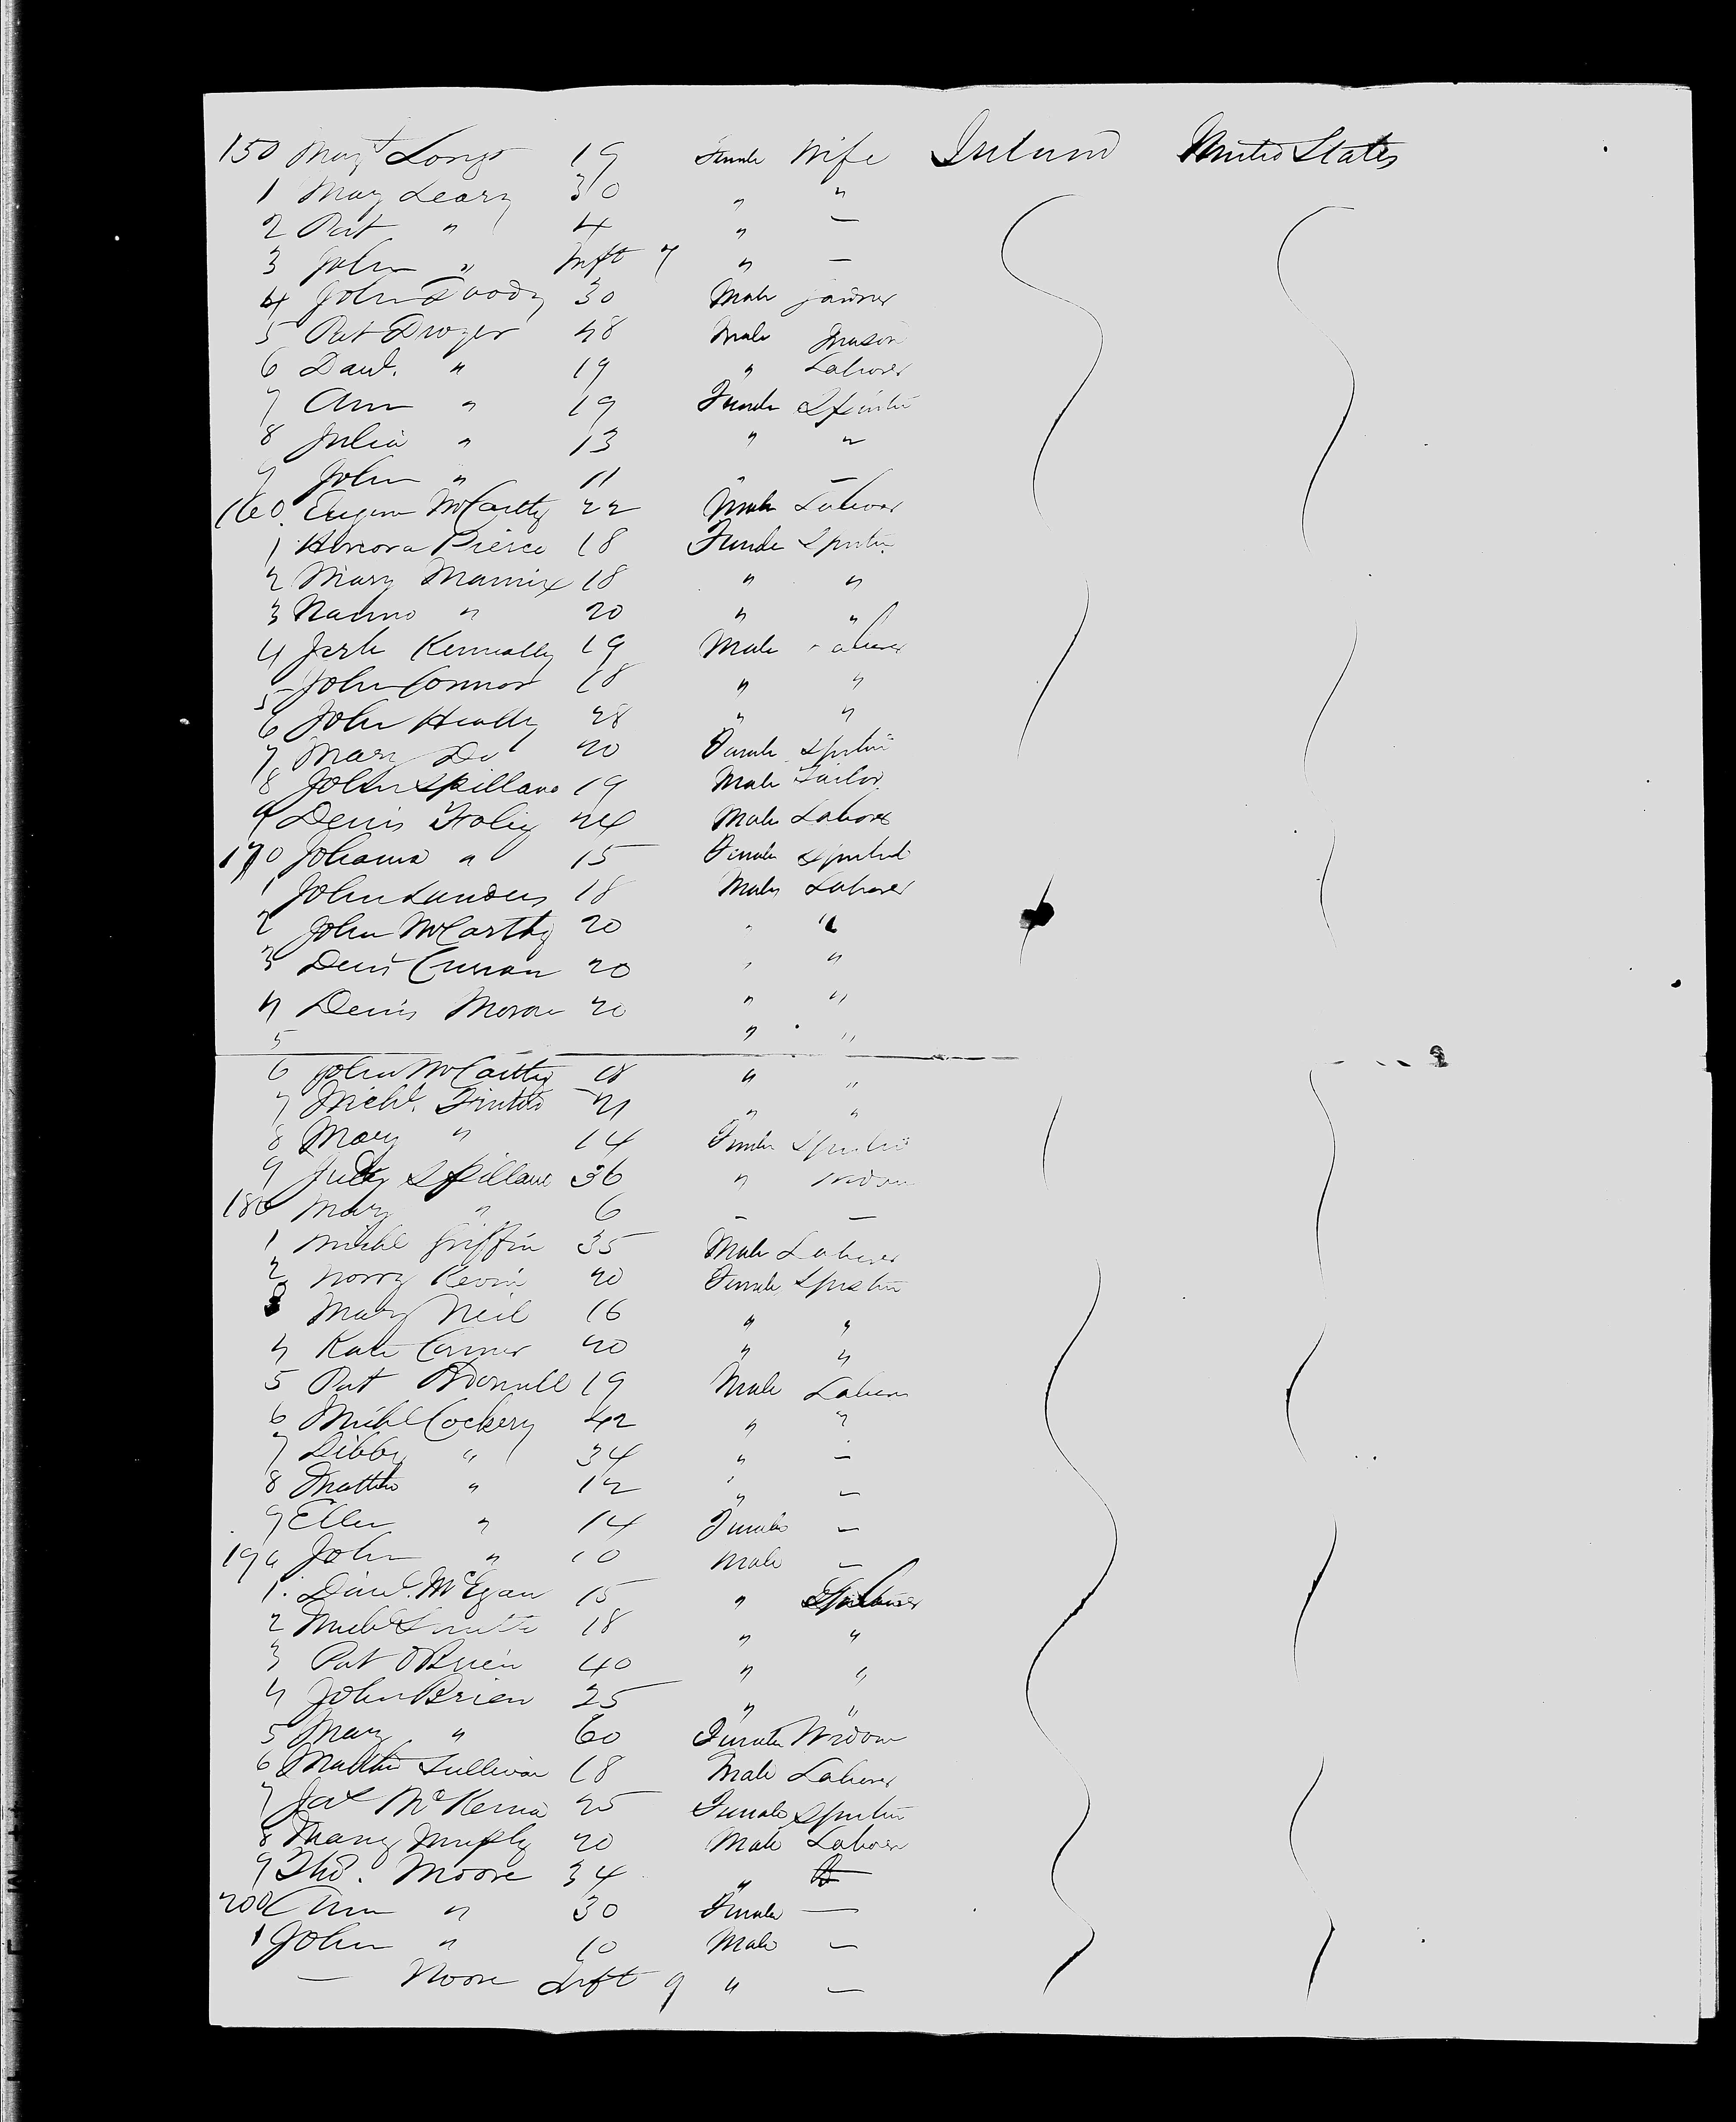 150 Mart Long 19 Female Wife Ireland United States
1 Mary Leary 30 " "
2 Pat " 4 " —
3 John " Inft 7 " —
4 John 30 Male
5 Pat Dwyer 48 Male Mason
6 Danl. " 19 " Laborer
7 Ann " 19 Female Spinster
8 Julia " 13 " "
9 John " 11 " —
160. Eugene McCarthy 22 Male Laborer
1 Honora Pierce 18 Female Spinster
2 Mary Mannix 18 " "
3 " 20 " "
4 Kenneally 19 Male Laborer
5 John Connor 18 " "
6 John Healy 28 " "
7 Mary Do 20 Female Spinster
8 John Spillane 19 Male Tailor
9 Denis Foley 24 Male Laborer
170 Johanna " 15 Female Spinster
1 John Landers 18 Male Laborer
2 John McCarthy 20 " "
3 Denis Curran 20 " "
4 Denis Moran 20 " "
5 " "
6 John McCarthy 18 " "
7 Michl. 21 " "
8 Mary " 14 Female Spinster
9 Judy Spillane 36 " Widow
180 Mary " 6 — —
1 Michl Griffin 35 Male Laborer
2 Norry Kevin 20 Female Spinster
3 Mary Neil 16 " "
4 Kate Connor 20 " "
5 Pat 19 Male Laborer
6 Michl Cockery 42 " "
7 Libby " 34 " —
8 Matthew " 12 " —
9 Ellen " 14 Female —
190 John " 10 Male —
1. Danl. McEgan 15 " Laborer
2 Michl 18 " "
3 Pat OBrien 40 " "
4 John Brien 25 " "
5 Mary " 60 Female Widow
6 Matthew Sullivan 18 Male Laborer
7 McKenna 25 Female Spinster
8 Mary Murphy 20 Male Laborer
9 Tho. Moore 34 "
200 Ann " 30 Female —
1 John " 10 Male —
— Moore Inft 9 " —